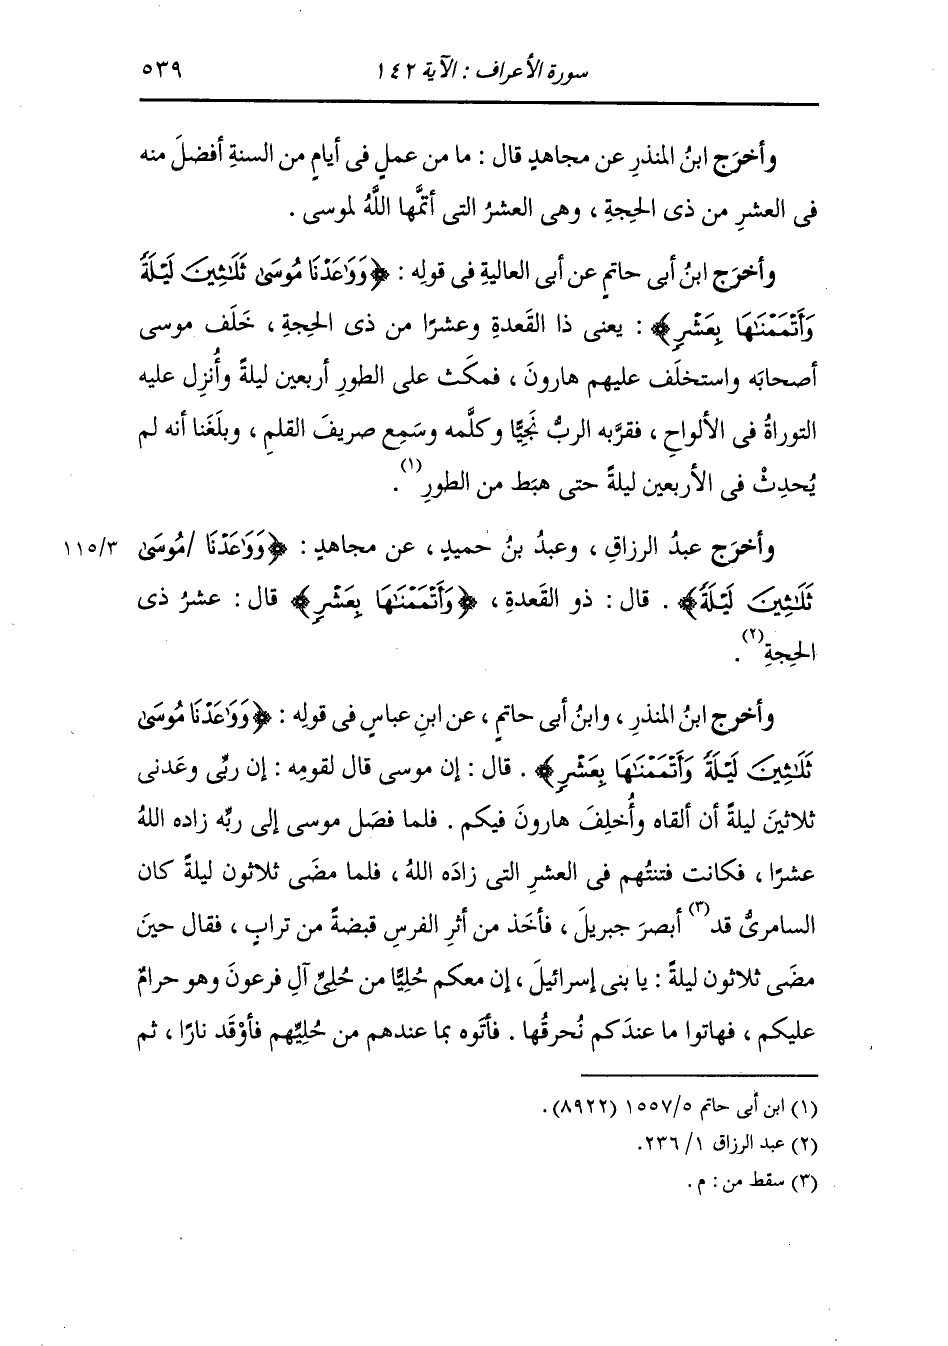 سورة الأعراف : الآية ١٤٢ ٥٣٩
وأخرَج ابنُ المنذرِ عن مجاهدٍ قال : ما من عملٍ فى أيامٍ من السنةِ أفضلَ منه
فى العشرِ من ذى الحِجةِ ، وهى العشرُ التى أتمَّها اللَّهُ لموسى .
وأخرَج ابنُ أبى حاتمٍ عن أبى العاليةِ فى قولِه : ﴿وَوَٰعَدْنَا مُوسَىٰ ثَلَٰثِينَ لَيْلَةً
وَأَتْمَمْنَٰهَا بِعَشْرٍ﴾ : يعنى ذا القَعدةِ وعشرًا من ذى الحِجةِ ، خَلَف موسى
أصحابَه واستخلَف عليهم هارونَ ، فمكَث على الطورِ أربعين ليلةً وأُنزِل عليه
التوراةُ فى الألواحِ ، فقرَّبه الربُّ نَجِيًّا وكلَّمه وسَمِع صريفَ القلمِ ، وبلَغَنا أنه لم
يُحدِثْ فى الأربعين ليلةً حتى هبَط من الطورِ(١).
وأخرَج عبدُ الرزاقِ ، وعبدُ بنُ حميدٍ ، عن مجاهدٍ : ﴿وَوَٰعَدْنَا /مُوسَىٰ ١١٥/٣
ثَلَٰثِينَ لَيْلَةً﴾ . قال : ذو القَعدةِ ، ﴿وَأَتْمَمْنَٰهَا بِعَشْرٍ﴾ قال : عشرُ ذى
الحِجةِ(٢).
وأخرج ابنُ المنذرِ ، وابنُ أبى حاتمٍ ، عن ابنِ عباسٍ فى قولِه : ﴿وَوَٰعَدْنَا مُوسَىٰ
ثَلَٰثِينَ لَيْلَةً وَأَتْمَمْنَٰهَا بِعَشْرٍ﴾ . قال : إن موسى قال لقومِه : إن ربِّى وعَدنى
ثلاثينَ ليلةً أن ألقاه وأُخلِفَ هارونَ فيكم . فلما فصَل موسى إلى ربِّه زاده اللهُ
عشرًا ، فكانت فتنتُهم فى العشرِ التى زادَه اللهُ ، فلما مضَى ثلاثون ليلةً كان
السامرىُّ قد(٣) أبصرَ جبريلَ ، فأخَذ من أثرِ الفرسِ قبضةً من ترابٍ ، فقال حينَ
مضَى ثلاثون ليلةً : يا بنى إسرائيلَ ، إن معكم حُلِيًّا من حُلِىِّ آلِ فرعونَ وهو حرامٌ
عليكم ، فهاتوا ما عندَكم نُحرقُها . فأتَوه بما عندهم من حُلِيِّهم فأوْقَد نارًا ، ثم
(١) ابن أبى حاتم ١٥٥٧/٥ (٨٩٢٢).
(٢) عبد الرزاق ١/ ٢٣٦.
(٣) سقط من : م .